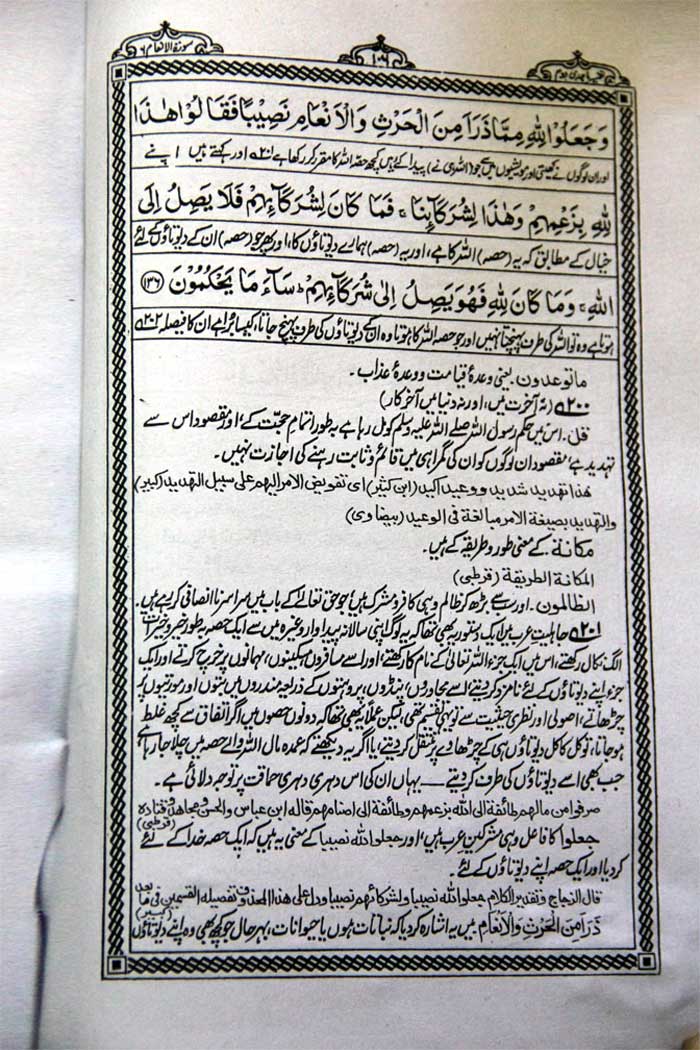 سورۃ الانعام ٦
١٠٦
تفسیر ماجدی دوم
وَجَعَلُوا لِلّٰهِ مِمَّا ذَرَاَ مِنَ الْحَرْثِ وَالْاَنْعَامِ نَصِيْبًا فَقَالُوْا هٰذَا
اور ان لوگوں نے کھیتی اور مویشیوں میں سے جو (اللہ ہی نے) پیدا کئے ہیں کچھ حصہ اللہ کا مقرر کر رکھا ہے ۵۲۰۱ اور کہتے ہیں اپنے
لِلّٰهِ بِزَعْمِهِمْ وَهٰذَا لِشُرَكَآئِنَا ۚ فَمَا كَانَ لِشُرَكَآئِهِمْ فَلَا يَصِلُ اِلَى
خیال کے مطابق کہ یہ (حصہ) اللہ کا ہے، اور یہ (حصہ) ہمارے دیوتاؤں کا، اور پھر جو (حصہ) ان کے دیوتاؤں کے لئے
اللّٰهِ ۚ وَمَا كَانَ لِلّٰهِ فَهُوَ يَصِلُ اِلٰى شُرَكَآئِهِمْ ؕ سَآءَ مَا يَحْكُمُوْنَ ﴿۱۳۶﴾
ہوتا ہے وہ تو اللہ کی طرف پہنچتا نہیں اور جو حصہ اللہ کا ہوتا وہ ان کے دیوتاؤں کی طرف پہنچ جاتا، کیسا برا ہے ان کا فیصلہ ۵۲۰۲
ما توعدون۔ یعنی وعدۂ قیامت و وعدۂ عذاب۔
۵۲۰۰ (نہ آخرت میں، اور نہ دنیا میں آخر کار)
قل۔ اس میں حکم رسول اللہ صلے اللہ علیہ وسلم کو مل رہا ہے بہ طور اتمام حجت کے، اور مقصود اس سے
تہدید ہے، مقصود ان لوگوں کو ان کی گمراہی میں قائم و ثابت رہنے کی اجازت نہیں۔
هذا تهديد شديد ووعيد اكيد (ابن كثير) اى تفويض الامر اليهم على سبيل التهديد (كبير)
والتهديد بصيغة الامر مبالغة فى الوعيد (بيضاوى)
مکانة کے معنی طور و طریقہ کے ہیں۔
المكانة الطريقة (قرطبى)
الظالمون۔ اور سب سے بڑھ کر ظالم وہی کافر و مشرک ہیں، جو حق تعالےٰ کے باب میں سراسر نا انصافی کر رہے ہیں۔
۵۲۰۱ جاہلیت عرب میں ایک دستور یہ بھی تھا کہ یہ لوگ اپنی سالانہ پیداوار وغیرہ میں سے ایک حصہ بہ طور خیر و خیرات
الگ نکال رکھتے، اس میں ایک جزء اللہ تعالیٰ کے نام کا رکھتے اور اسے مسافروں، مسکینوں، مہمانوں پر خرچ کرتے اور ایک
جزء اپنے دیوتاؤں کے لئے نامزد کر دیتے، اسے مجاوروں، پنڈوں، پروہتوں کے ذریعہ مندروں میں بتوں اور مورتیوں پر
چڑھاتے، اصولی اور نظری حیثیت سے تو یہی تقسیم تھی، لیکن عملاً یہ بھی تھا کہ دونوں حصوں میں اگر اتفاق سے کچھ غلط
ہو جاتا، تو کل کا کل دیوتاؤں ہی کے چڑھاوے پر منتقل کر دیتے یا اگر یہ دیکھتے کہ عمدہ مال اللہ والے حصہ میں چلا جا رہا ہے،
جب بھی اسے دیوتاؤں کی طرف کر دیتے — یہاں ان کی اس دہری دہری حماقت پر توجہ دلائی ہے۔
صرفوا من مالهم طائفة الى الله بزعمهم وطائفة الى اصنامهم قاله ابن عباس والحسن ومجاهد وقتادة (قرطبى)
جعلوا کا فاعل وہی مشرکین عرب ہیں، اور جعلوا للہ نصیبا کے معنی یہ ہیں کہ ایک حصہ خدا کے لئے
کر دیا اور ایک حصہ اپنے دیوتاؤں کے لئے۔
قال الزجاج وتقدير الكلام جعلوا لله نصيبا ولشركائهم نصيبا ودل على هذا المحذوف تفصيله القسمين فى ما بعد (كبير)
ذَرَاَ مِنَ الْحَرْثِ وَالْاَنْعَامِ میں یہ اشارہ کر دیا کہ نباتات ہوں یا حیوانات، بہرحال جو کچھ بھی وہ اپنے دیوتاؤں